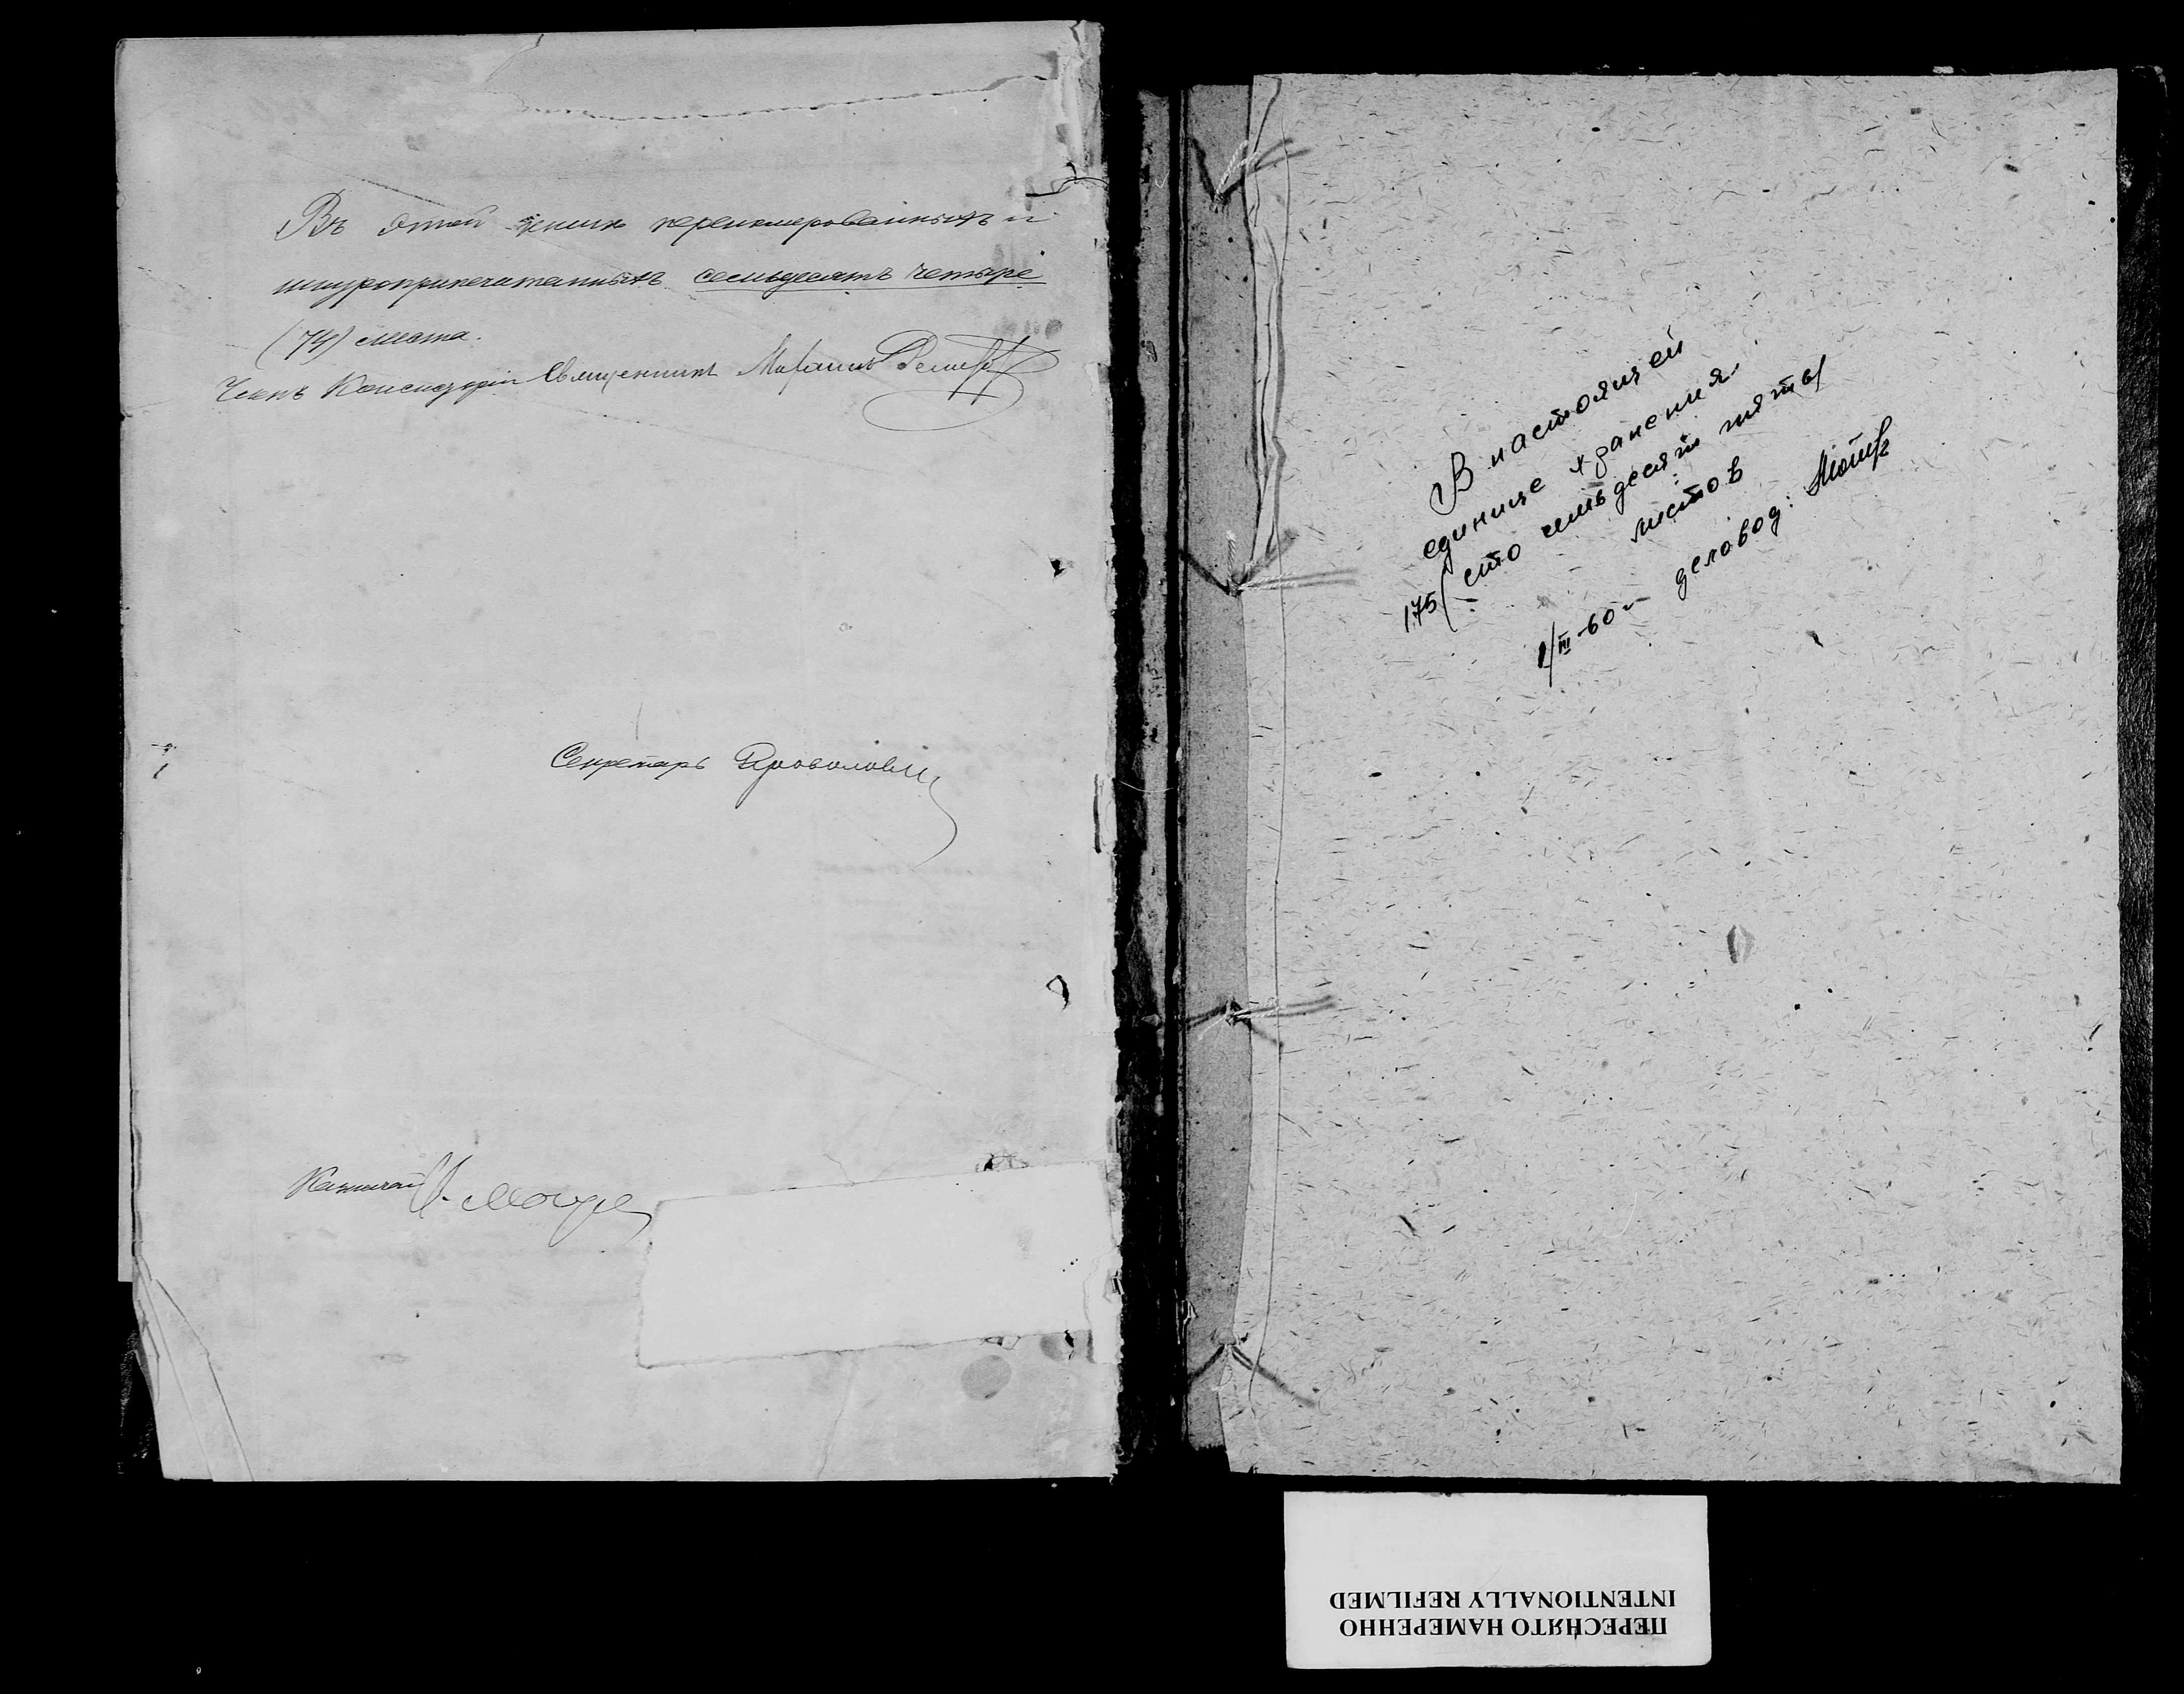 Въ этой книгѣ перенумерованныхъ и
шнуроприпечатанныхъ семьдесятъ четыре
(74) листа.
Членъ Консисторіи Священникъ
Секретарь
Казначей
В настоящей
единице хранения
175 (сто семьдесят пять)
листов
1/III-60 г делавод:
ПЕРЕСНЯТО НАМЕРЕННО
INTENTIONALLY REFILMED